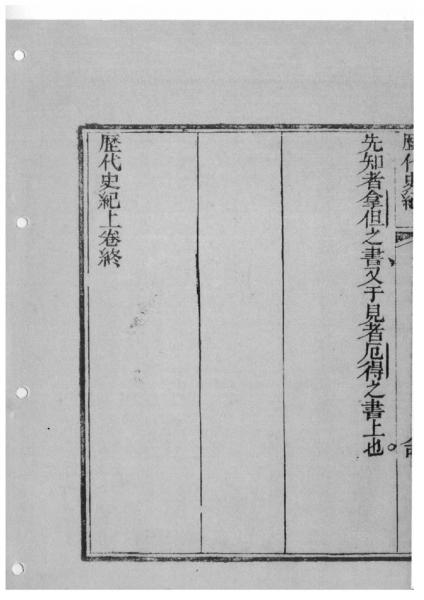 歷代史紀
先知者拿但之書又于見者厄得之書上也。
歷代史紀上卷終